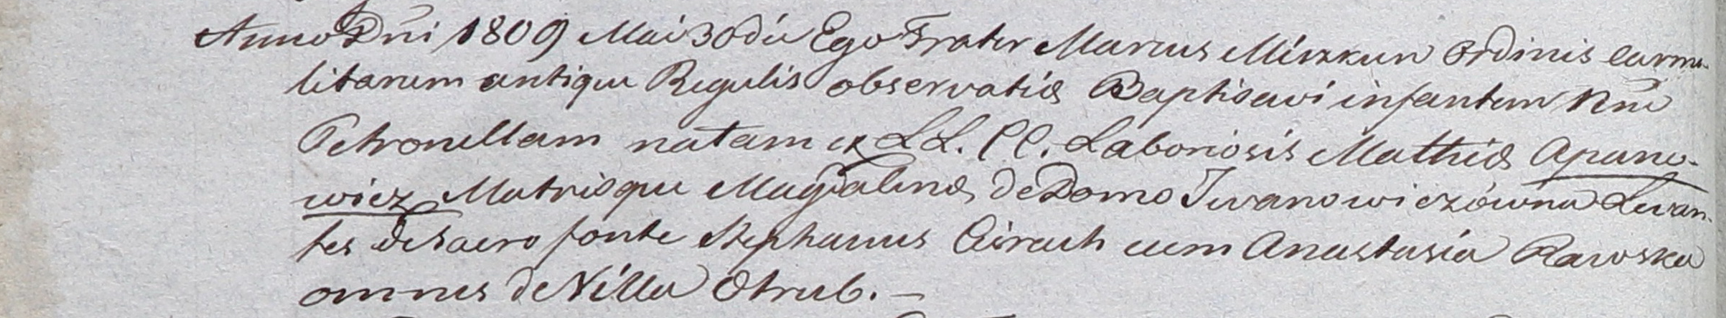 Anno Dni 1809 Mai 30 die Ego Frater Marcus Mirzkun Ordinis Carme-
litarum antique Regulis observatiæ Baptisavi infantem Nne
Petronellam natam ex LL. CC. Laboriosis Mathiæ Apano-
wicz Matrisque Magdalenæ de Domo Iwanowiczówna Levan-
tes de Sacro fonte Stephanus cum Anastasia Rawska
omnes de Villa Otrub. —